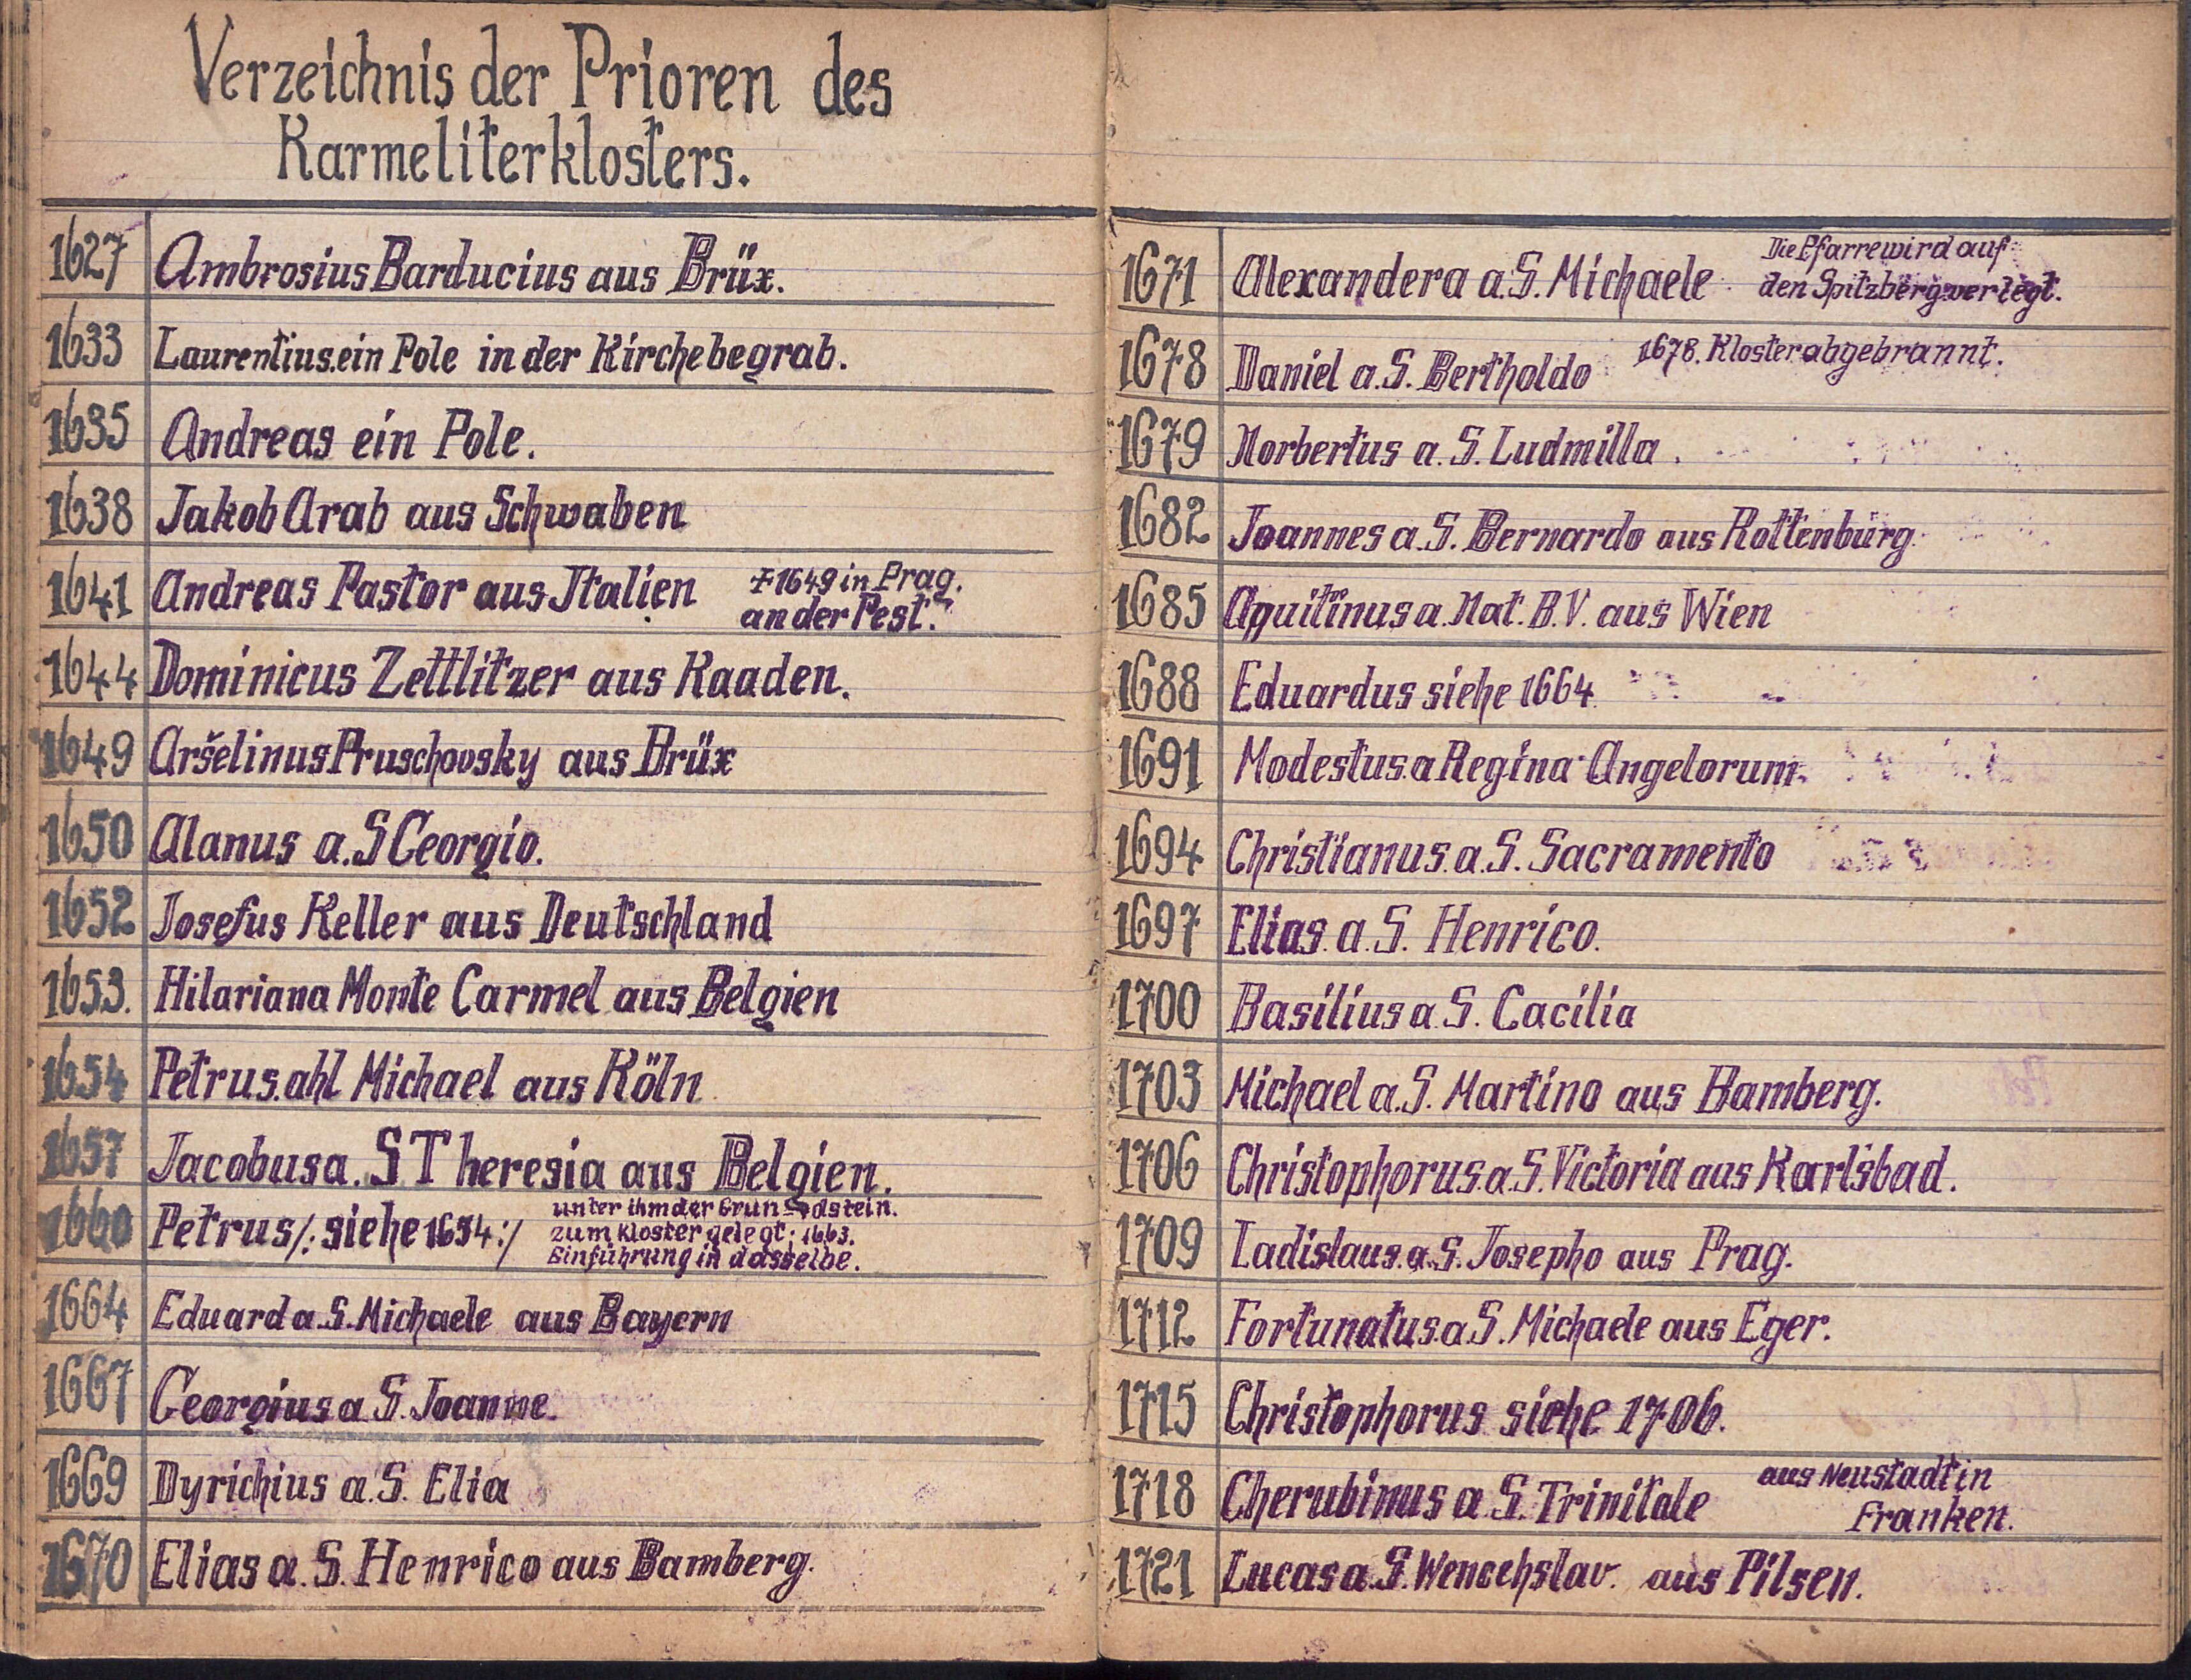 Verzeichnis der Prioren des
Karmeliterklosters.
1627 Ambrosius Barducius aus Brüx.
1633 Laurentius.ein Pole in der Kirche begrab.
1635 Andreas ein Pole.
1638 Jakob Arab aus Schwaben
1641 Andreas Pastor aus Italien +1649 in Prag.
an der Pest.
1644 Dominicus Zettlitzer aus Kaaden.
1649 Aršelinus Pruschovsky aus Brüx
1650 Alanus a. S Georgio.
1652 Josefus Keller aus Deutschland
1653. Hilarian a Monte Carmel aus Belgien
1654 Petrus.ahl Michael aus Köln
1657 Jacobus a. S Theresia aus Belgien.
1660 Petrus /: siehe 1654 :/ unter ihm der Grundstein.
zum Kloster gelegt; 1663.
Einführung in dasselbe.
1664 Eduard a. S. Michaele aus Bayern
1667 Georgius a S. Joanne.
1669 Dyrichius a. S. Elia
1670 Elias a. S. Henrico aus Bamberg.
1671 Alexander a a. S. Michaele Die Pfarre wird auf
den Spitzberg verlegt.
1678 Daniel a. S. Bertholdo 1678. Kloster abgebrannt.
1679 Norbertus a. S. Ludmilla.
1682 Joannes a. S. Bernardo aus Rottenburg.
1685 Aquitinus a. Nat. B. V. aus Wien
1688 Eduardus siehe 1664
1691 Modestus a Regina Angelorum.
1694 Christianus. a. S. Sacramento
1697 Elias. a. S. Henrico.
1700 Basilius a S. Cacilia
1703 Michael a. S. Martino aus Bamberg.
1706 Christophorus. a. S. Victoria aus Karlsbad.
1709 Ladislaus. a. S. Josepho aus Prag.
1712 Fortunatus. a S. Michaele aus Eger.
1715 Christophorus siehe 1706.
1718 Cherubinus a S. Trinitate aus Neustadt in
Franken.
1721 Lucas a. S. Wencehslav. aus Pilsen.